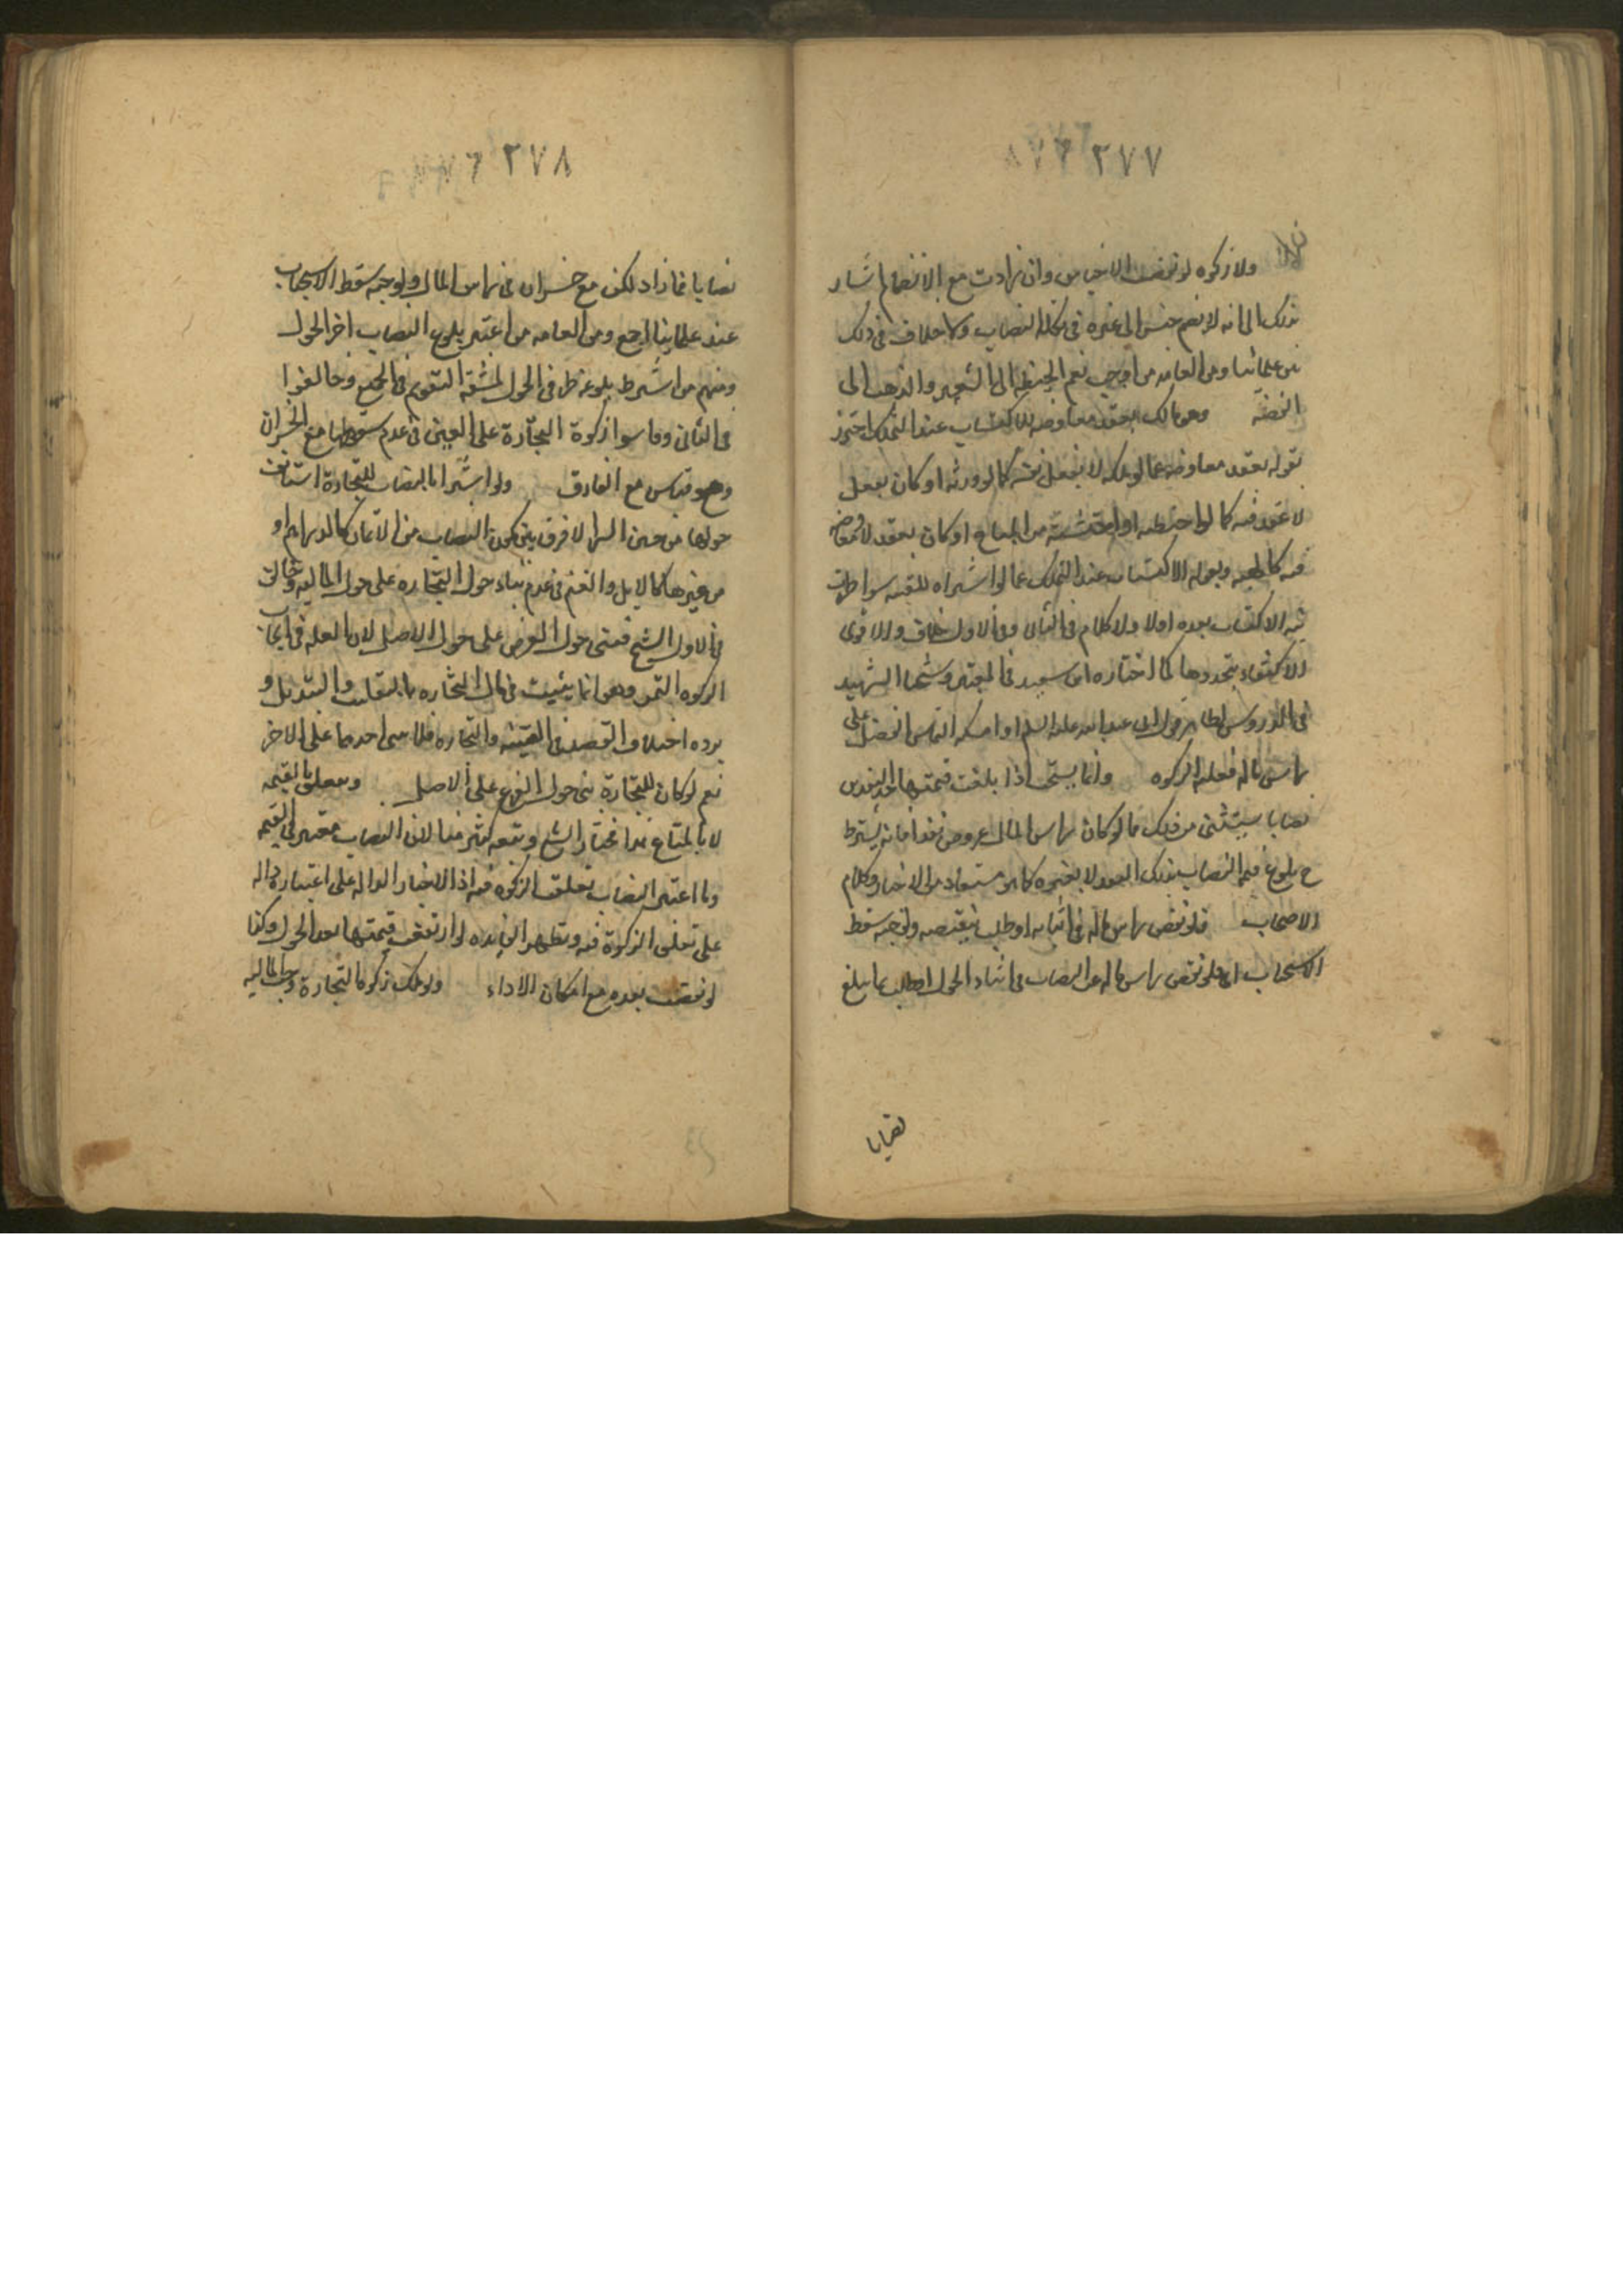 ٢٧٧
ولا زكوه لو نقصت الاجناس وان زادت مع الانضمام اشار
بذلك الى انه لا يضم جنس الى غيره في تكملة النصاب ولا خلاف في ذلك
بين علمائنا ومن العامه من اوجب ضم الحنطه الى الشعير والذهب الى
الفضة وهو ما ملك بعقد معاوضه للاكتساب عند التملك احترز
بقوله بعقد معاوضه عما لو ملكه لا بفعل نفسه كما لو ورثه او كان بفعل
لا عقد فيه كما لو احتطبه او احتشه من المباح او كان بعقد لا معاوضه
فيه كالهبه وبقوله الاكتساب عند التملك عما لو اشتراه للقنيه سوا طرات
نيه الاكتساب بعده اولا ولا كلام في الثاني وفي الاول خلاف والاقوى
الاكتفاء بتجددها كما اختاره ابن سعيد في المعتبر وشيخنا الشهيد
في الدروس لظاهر قول ابي عبد الله عليه السلم او امسكه التماس الفضل على
راس ماله فعليه الزكوه وانما يستحب اذا بلغت قيمتها باحد النقدين
نصابا يستثنى من ذلك ما لو كان راس المال عروض نقدا فانه يشترط
ح بلوغ قيمه النصاب بذلك النقد لا بغيره كما هو مستفاد من الاخبار وكلام
الاصحاب فلو نقص راس ماله في اثنائه او طلب بنقيصه ولو حبه سقط
الاستحباب اي فلو نقص راس ماله عن النصاب في اثناء الحول او طلب بما يبلغ
نصابا
٢٧٨
نصابا فما زاد لكن مع خسران في راس المال ولو حبه سقط الاستحباب
عند علمائنا اجمع ومن العامه من اعتبر بلوغ النصاب اخر الحول
ومنهم من اشترط بلوغه طرفي الحول لمشقه التقويم في الجميع وخالفوا
في الثاني وقاسوا زكوة التجارة على العين في عدم سقوطها مع الخسران
وهو قياس مع الفارق ولو اشترا بالنصاب للتجارة استانف
حولها من حين الشرا لا فرق بين كون النصاب من الاثمان كالدراهم او
من غيرها كالابل والغنم في عدم بناء حول التجاره على حول الماليه وخالف
في الاول الشيخ فبنى حول العرض على حول الاصل لان العله في ايجاب
الزكوه النمو وهو انما يثبت في مال التجاره بالتقلب والتبديل و
يرده اختلاف القصد في القنيه والتجاره فلا يبنى احدهما على الاخر
نعم لو كان للتجارة بنى حول الفرع على الاصل وتتعلق بالقيمه
لا بالمتاع هذا مختار الشيخ وتبعه كثير منا لان النصاب معتبر في القيمه
وما اعتبر النصاب تعلقت الزكوه فيه اذ الاخبار الداله على اعتباره داله
على تعلق الزكوة فيه وتظهر الفايده لو ارتفعت قيمتها بعد الحول وكذا
لو نقصت بعده مع امكان الاداء ولو ملك زكويا للتجارة وجب الماليه